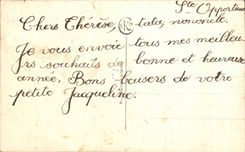 Ste Opportune
Chers Thérèse, tata, nononcle.
Je vous envoie tous mes meilleu
rs souhaits de bonne et heureuse
année. Bons baisers de votre
petite Jacqueline.